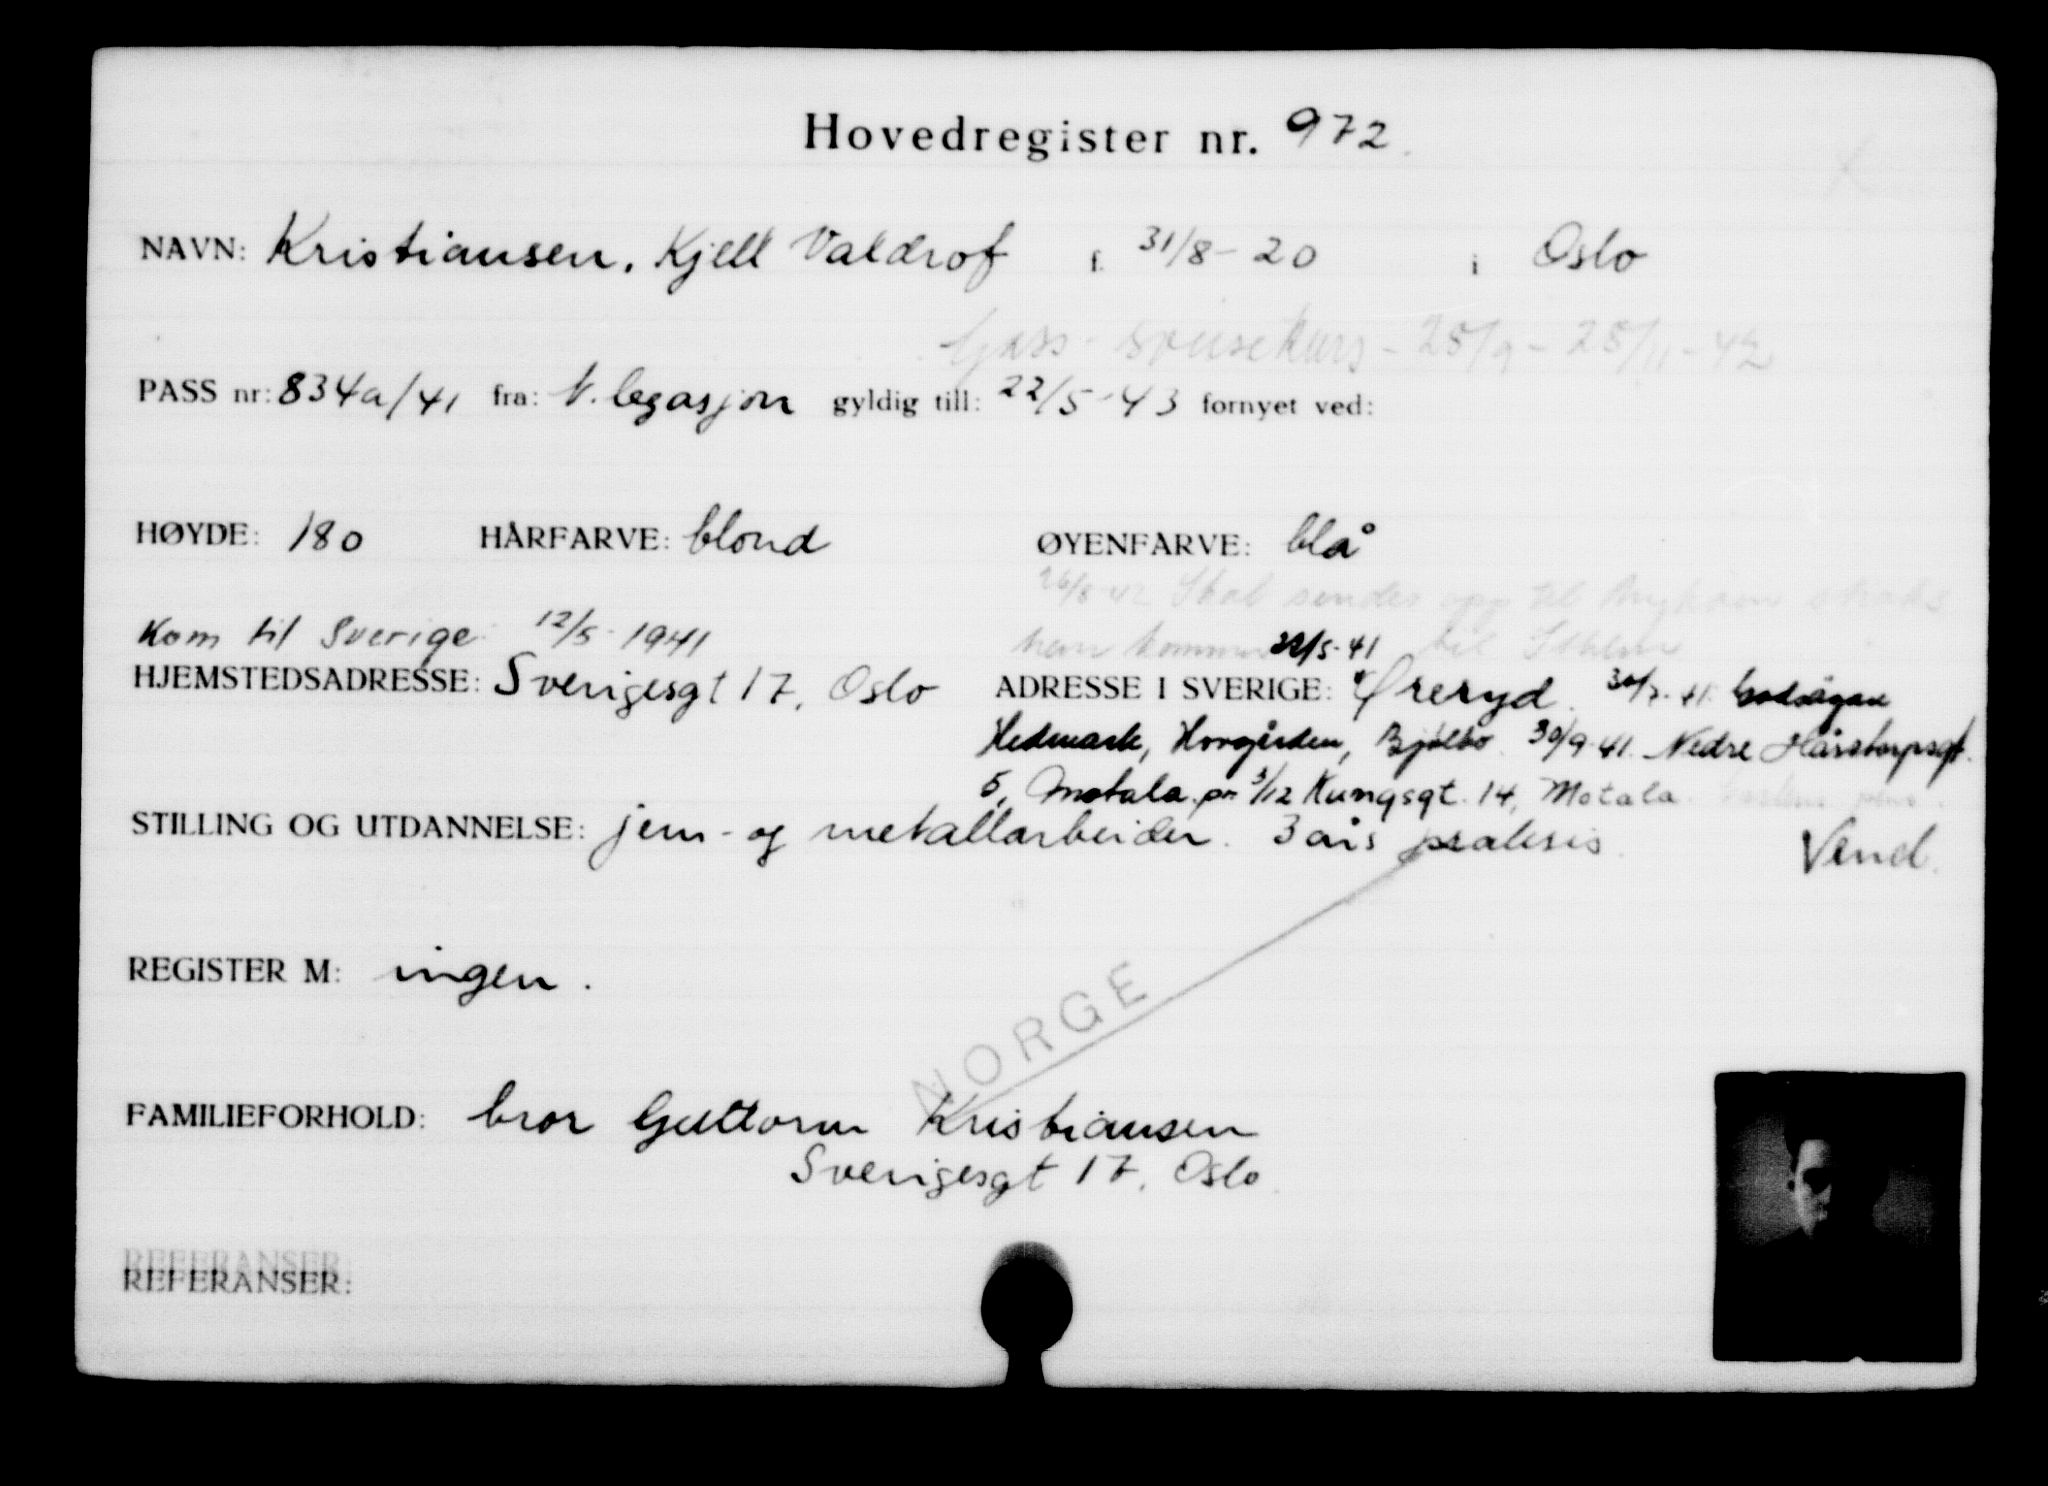 Hovedregister nr. 972.
NAVN: Kristiansen, Kjell Valdrof f. 31/8-20 i Oslo
Gass-sveisekurs-25/9-25/11-42
PASS nr: 834a/41 fra: N. legasjon gyldig till: 22/5-43 fornyet ved:
HØYDE: 180 HÅRFARVE: blond ØYENFARVE: blå
26/8-42 Skal sendes opp til straks
Kom til Sverige 12/5-1941 han kommer til Sthlm
29/5-41
HJEMSTEDSADRESSE: Sverigesgt 17, Oslo ADRESSE I SVERIGE: Øreryd. 41. Godsägare
Hedmark, Hovgården, Bjälbo 30/9-41. Nedre Hårstorpsgt.
5, Motala. pr 3/12 Kungsgt. 14, Motala
STILLING OG UTDANNELSE: jern- og metallarbeider. 3 års praksis. Vend.
REGISTER M: ingen.
NORGE
FAMILIEFORHOLD: bror Guttorm Kristiansen
Sverigesgt 17, Oslo.
REFERANSER
REFERANSER: